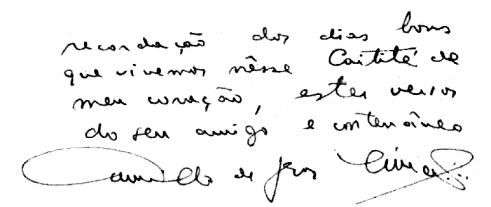 recordação dos dias bons
que vivemos nêsse Caitité de
meu coração, estes versos
do seu amigo e conterrâneo
Camillo de Jesus Lima